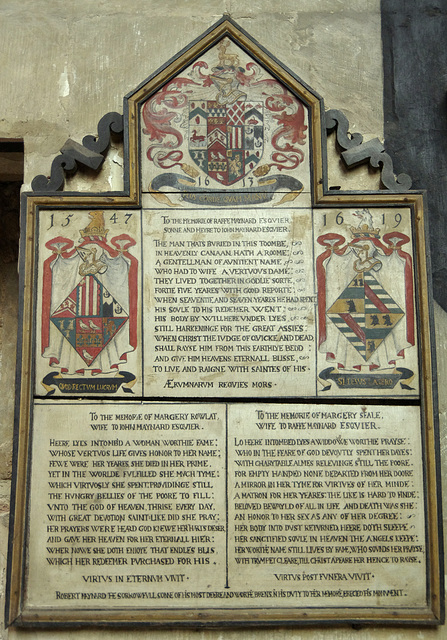 16 13
15 47
16 19
TO THE MEMORIE OF RAFFE MAYNARD ESQVIER
SONNE AND HEYRE TO IOHN MAYNARD ESQVIER.
THE MAN THATS BVRIED IN THIS TOOMBE,
IN HEAVENLY CANAAN HATH A ROOME;
A GENTELLMAN OF AVNTIENT NAME,
WHO HAD TO WIFE A VERTVOVS DAME;
THEY LIVED TOGETHER IN GODLIE SORTE,
FORTIE FIVE YEARES WITH GOOD REPORTE;
WHEN SEAVENTIE AND SEAVEN YEARES HE HAD SPENT
HIS SOVLE TO HIS REDEMER WENT;
HIS BODY BY WILL HERE VNDER LYES,
STILL HARKENINGE FOR THE GREAT ASSIES,
WHEN CHRIST THE IVDGE OF QVICKE AND DEAD,
SHALL RAYSE HIM FROM THIS EARTHLYE BEDD
AND GIVE HIM HEAVENS ETERNALL BLISSE,
TO LIVE AND RAIGNE WITH SAINTES OF HIS.
ÆRVMNARVM REQVIES MORS.
QVO RECTVM LVCRVM
TO THE MEMORIE OF MARGERY ROWLAT,
WIFE TO IOHN MAYNARD ESQVIER.
HEERE LYES INTOMB'D A WOMAN WORTHIE FAME;
WHOSE VERTVOVS LIFE GIVES HONOR TO HER NAME;
FEWE WERE HER YEARES SHE DIED IN HER PRIME,
YET IN THE WORLDE FVLFILLED SHE MVCH TYME;
WHICH VIRTVOSLY SHE SPENT, PROVIDINGE STILL,
THE HVNGRY BELLIES OF THE POORE TO FILL:
VNTO THE GOD OF HEAVEN, THRISE EVERY DAY,
WITH GREAT DEVOTION SAINT LIKE DID SHE PRAY:
HER PRAYERS WERE HEARD GOD GEEVE HER HARTS DESIER,
AND GAVE HER HEAVEN FOR HER ETERNALL HIER:
WHER NOWE SHE DOTH ENIOYE THAT ENDLES BLIS,
WHICH HER REDEEMER PVRCHASED FOR HIS.
VIRTVS IN ETERNVM VIVIT.
TO THE MEMORIE OF MARGERY SEALE,
WIFE TO RAFFE MAYNARD ESQVIER.
LO HEERE INTOMBED LYES A WIDDOWE WORTHIE PRAYSE
WHO IN THE FEARE OF GOD DEVOVTLY SPENT HER DAYES:
WITH CHARYTABLE ALMES RELEVINGE STILL THE POORE
FOR EMPTY HANDED NONE DEPARTED FROM HER DOORE
A MIRROR IN HER TYME FOR VIRTVES OF HER MINDE
A MATRON FOR HER YEARES: THE LIKE IS HARD TO FINDE
BELOVED BEWAYLD OF ALL IN LIFE AND DEATH WAS SHE
AN HONOR TO HER SEX AS ANY OF HER DEGREE
HER BODY INTO DVST RETVRNED HEERE DOTH SLEEPE
HER SANCTIFIED SOVLE IN HEAVEN THE ANGELS KEEPE:
HER WORTHIE NAME STILL LIVES BY FAME, WHO SOVNDS HER PRAYSE
WITH TRVMPET CLEARE, TILL CHRIST APEARE HER HENCE TO RAISE.
VIRTVS POST FVNERA VIVIT.
ROBERT MAYNARD THE SORROWFVLL SONNE OF HIS MOST DEERE AND WORTHIE PARENTS, IN HIS DVTY TO THEIR MEMORIE, ERECTED THIS MONVMENT.